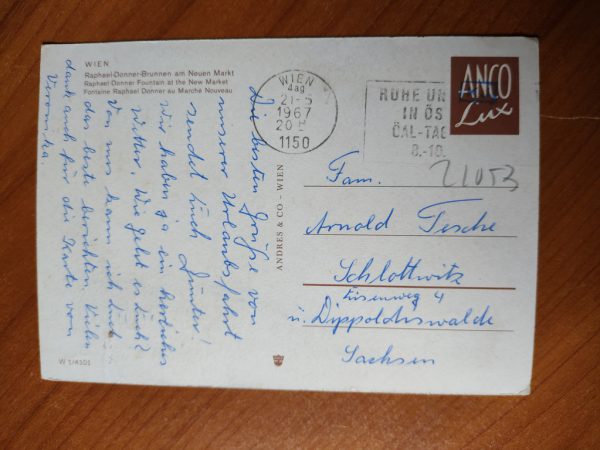 WIEN
Raphael-Donner-Brunnen am Neuen Markt
Raphael Donner Fountain at the New Market
Fontaine Raphael Donner au Marché Nouveau
Die besten Grüße von
unserer Urlaubsfahrt
sendet Euch Gunter!
Wir haben ja ein herrliches
Wetter. Wie geht es Euch?
Von uns kann ich Euch
das beste berichten. Vielen
Dank auch für die Karte von
Veronika.
W 1/4101
ANDRES & CO - WIEN
WIEN
4ag
21-5
1967
20
1150
RUHE UN
IN ÖS
ÖAL-TAG
8.-10.
ANCO
Lux
21053
Fam.
Arnold Tesche
Schlottwitz
Eisenweg 4
ü. Dippoldiswalde
Sachsen